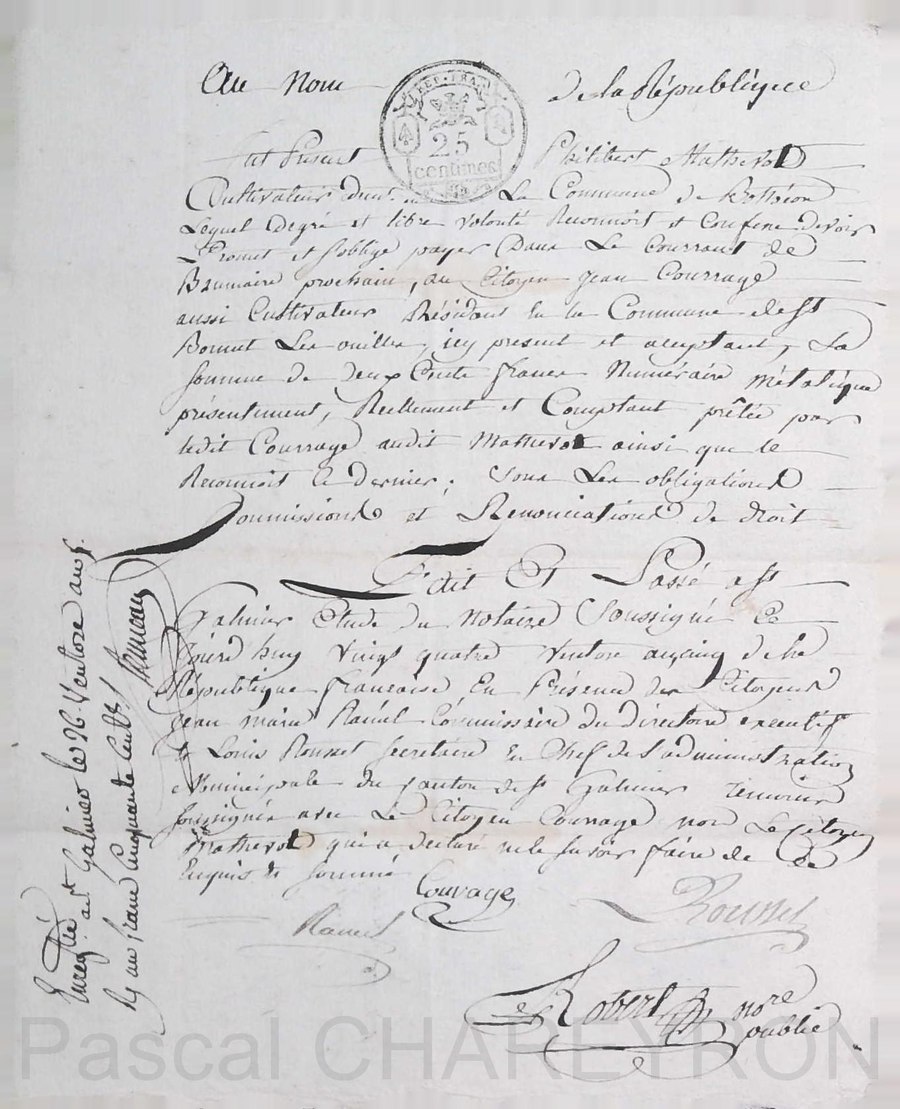 Au nom de la République
REP. FRA.
25
centimes
fut Présent Philibert Matherod
Cultivateur La Commune de
Lequel degré et libre volonté Reconnoit et Confesse devoir
Promet et s'oblige payer Dans Le Courrant de
Brumaire prochain, au Citoyen jean Courrage
aussi Cultivateur Résidant en la Commune de St
Bonnet Les ouilles, icy présent et acceptant, La
somme de deux Cents francs Numéraire métalique
présentement, Réellement et Comptant prêtée par
ledit Courrage audit Matherod ainsi que le
Reconnoit Ce dernier; sous Les obligations
Soumissions et Renonciations de droit
Fait Et Passé a St
Galmier Etude du Notaire Soussigné Ce
jourd'huy vingt quatre ventose an cinq de la
République française En Présence des Citoyens
jean marie Ramel Commissaire du Directoire executif
et Louis Rousset secretaire En Chef de l'administration
Municipale du Canton de St Galmier temoins
soussignés avec Le Citoyen Courrage non Le Citoyen
Matherod qui a declaré ne le savoir faire de Ce
Enquis et sommé
Couvage
Ramel
Rousset
Robert nore
public
Enregtré a St Galmier le 26 Ventose an 5.
Rç un franc Cinquante Centes
Pascal CHAREYRON